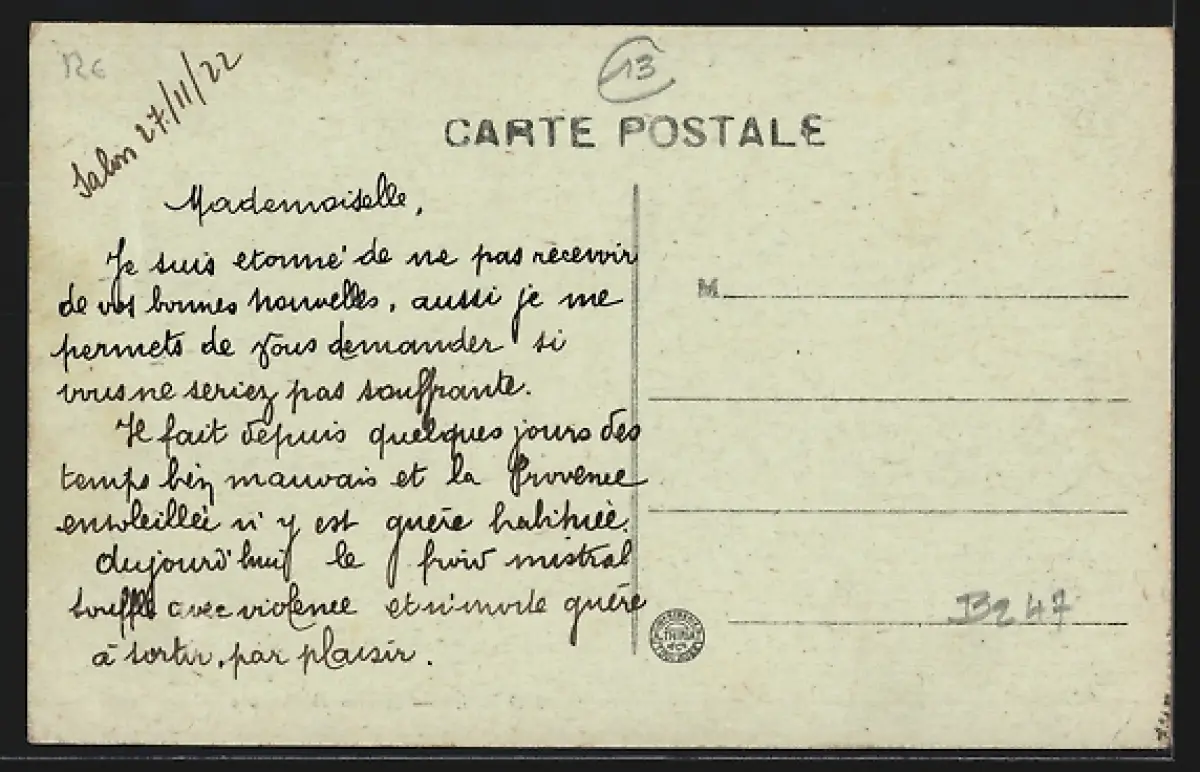 RE
Salon 27/11/22
13
CARTE POSTALE
Mademoiselle,
Je suis etonné de ne pas recevoir
de vos bonnes nouvelles, aussi je me
permets de vous demander si
vous ne seriez pas souffrante.
Il fait depuis quelques jours des
temps bien mauvais et la Provence
ensoleillée n'y est guère habituée.
Aujourd'hui le froid mistral
souffle avec violence et n'invite guère
à sortir, par plaisir.
M
B247